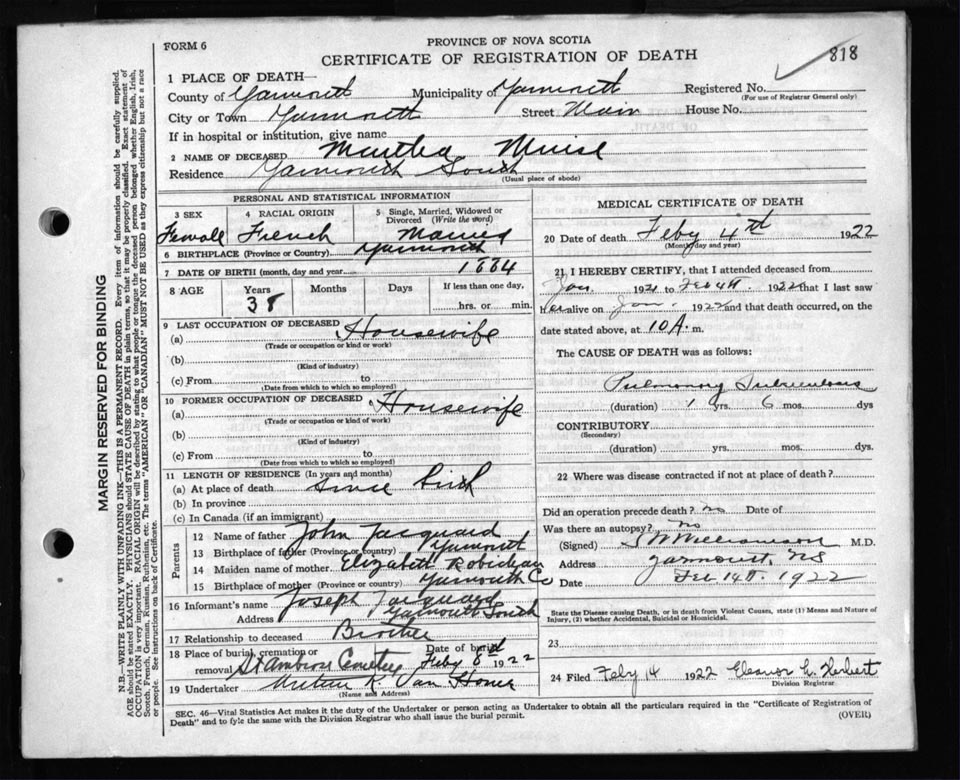 FORM 6
PROVINCE OF NOVA SCOTIA
CERTIFICATE OF REGISTRATION OF DEATH
818
1 PLACE OF DEATH—
County of Yarmouth Municipality of Yarmouth Registered No.
(For use of Registrar General only)
City or Town Yarmouth Street Main House No.
If in hospital or institution, give name
2 NAME OF DECEASED Martha Muise
Residence Yarmouth South
(Usual place of abode)
PERSONAL AND STATISTICAL INFORMATION
3 SEX 4 RACIAL ORIGIN 5 Single, Married, Widowed or Divorced (Write the word)
Femall French Married
6 BIRTHPLACE (Province or Country) Yarmouth
7 DATE OF BIRTH (month, day and year) 1884
8 AGE Years Months Days If less than one day,
38 hrs. or min.
9 LAST OCCUPATION OF DECEASED
(a) Housewife
(Trade or occupation or kind or work)
(b)
(Kind of industry)
(c) From to
(Date from which to which so employed)
10 FORMER OCCUPATION OF DECEASED
(a) Housewife
(Trade or occupation or kind of work)
(b)
(Kind of industry)
(c) From to
(Date from which to which so employed)
11 LENGTH OF RESIDENCE (In years and months)
(a) At place of death Since Birth
(b) In province
(c) In Canada (if an immigrant)
Parents
12 Name of father John Jacquard
13 Birthplace of father (Province or country) Yarmouth
14 Maiden name of mother Elizabeth Robicheau
15 Birthplace of mother (Province or country) Yarmouth Co
16 Informant's name Joseph Jacquard
Address Yarmouth South
17 Relationship to deceased Brother
18 Place of burial, cremation or removal St Ambrose Cemetery Date of burial Feby 8th 1922
19 Undertaker K. Van Horne
(Name and Address)
MEDICAL CERTIFICATE OF DEATH
20 Date of death Feby 4th 1922
(Month, day and year)
21. I HEREBY CERTIFY, that I attended deceased from
Jan. 1921 to Feb 4th. 1922 that I last saw
her alive on Jan 1922 and that death occurred, on
date stated above, at 10 A. m.
The CAUSE OF DEATH was as follows:
Pulmonary Tuberculosis
(duration) 1 yrs. 6 mos. dys
CONTRIBUTORY
(Secondary)
(duration) yrs. mos. dys.
22 Where was disease contracted if not at place of death?
Did an operation precede death? No Date of
Was there an autopsy? No
(Signed) S W Williamson M.D.
Address Yarmouth, NS
Date Feb 14th. 1922
State the Disease causing Death, or in death from Violent Causes, state (1) Means and Nature of
Injury, (2) whether Accidental, Suicidal or Homicidal.
23
24 Filed Feby 14 1922 Eleanor L. Herbert
Division Registrar.
SEC. 46—Vital Statistics Act makes it the duty of the Undertaker or person acting as Undertaker to obtain all the particulars required in the "Certificate of Registration of
Death" and to fyle the same with the Division Registrar who shall issue the burial permit.
(OVER)
MARGIN RESERVED FOR BINDING
N.B.—WRITE PLAINLY WITH UNFADING INK—THIS IS A PERMANENT RECORD. Every item of information should be carefully supplied.
AGE should be stated EXACTLY. PHYSICIANS should STATE CAUSE OF DEATH in plain terms, so that it may be properly classified. Exact statement of
OCCUPATION is very important. RACIAL ORIGIN will be described by stating to what people or tongue the deceased person belonged whether English, Irish,
Scotch, French, German, Russian, Ruthenian, etc. The terms "AMERICAN" OR "CANADIAN" MUST NOT BE USED as they express citizenship but not a race
or people. See instructions on back of Certificate.